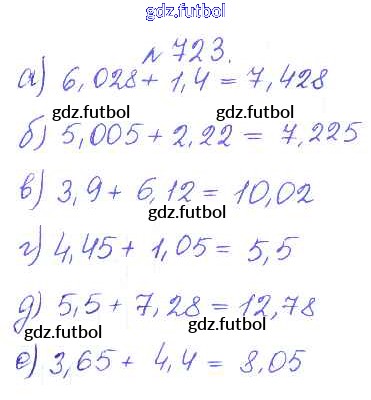 gdz.futbol
№ 723.
а) 6,028 + 1,4 = 7,428
gdz.futbol gdz.futbol
б) 5,005 + 2,22 = 7,225
в) 3,9 + 6,12 = 10,02
gdz.futbol
г) 4,45 + 1,05 = 5,5
д) 5,5 + 7,28 = 12,78
gdz.futbol gdz.futbol
е) 3,65 + 4,4 = 8,05